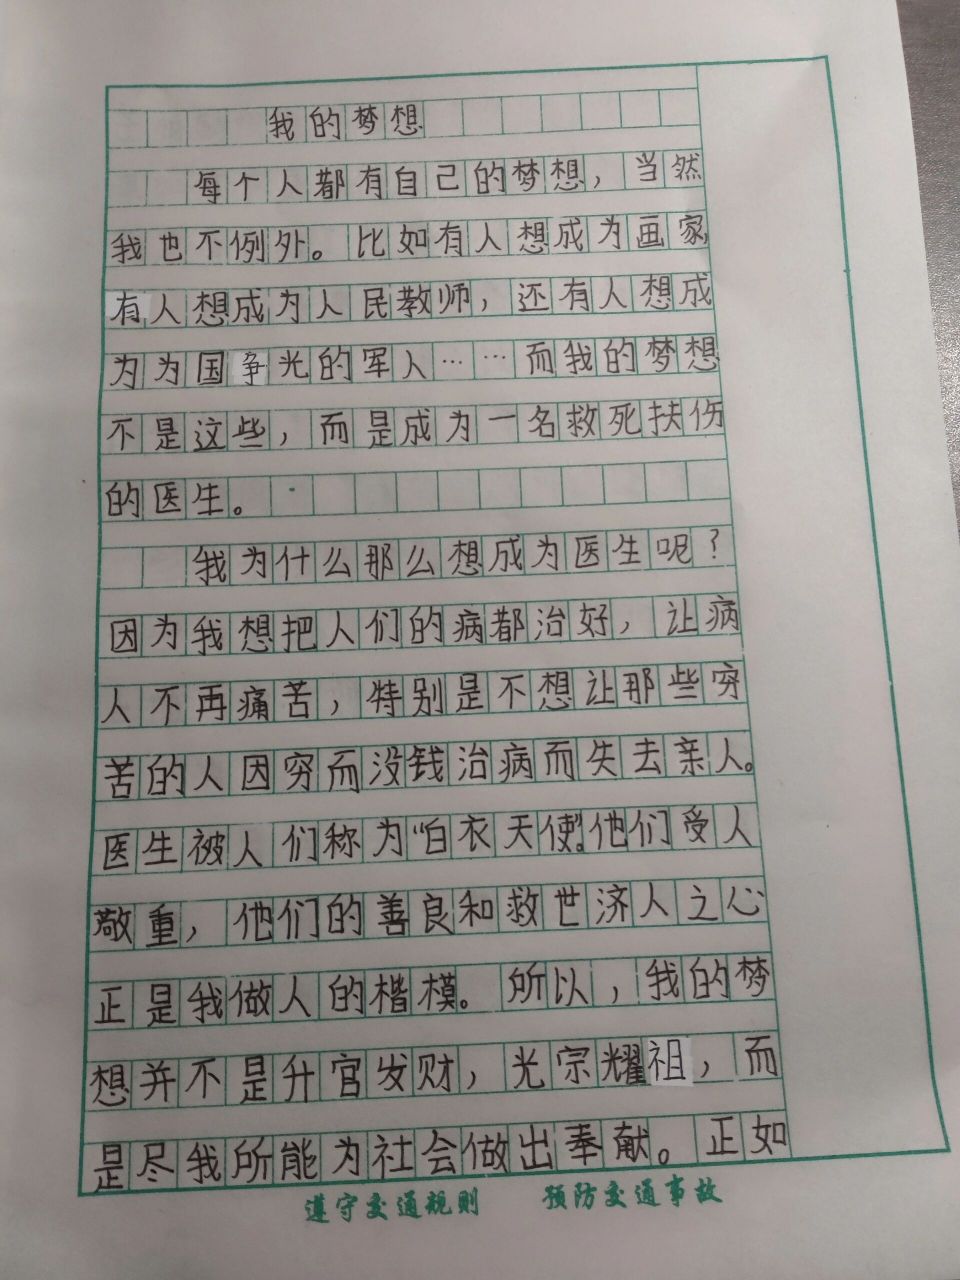 我的梦想
每个人都有自己的梦想，当然
我也不例外。比如有人想成为画家，
有人想成为人民教师，还有人想成
为为国争光的军人……而我的梦想
不是这些，而是成为一名救死扶伤
的医生。
我为什么那么想成为医生呢？
因为我想把人们的病都治好，让病
人不再痛苦，特别是不想让那些穷
苦的人因穷而没钱治病而失去亲人。
医生被人们称为“白衣天使”。他们受人
敬重，他们的善良和救世济人之心
正是我做人的楷模。所以，我的梦
想并不是升官发财，光宗耀祖，而
是尽我所能为社会做出奉献。正如
遵守交通规则 预防交通事故